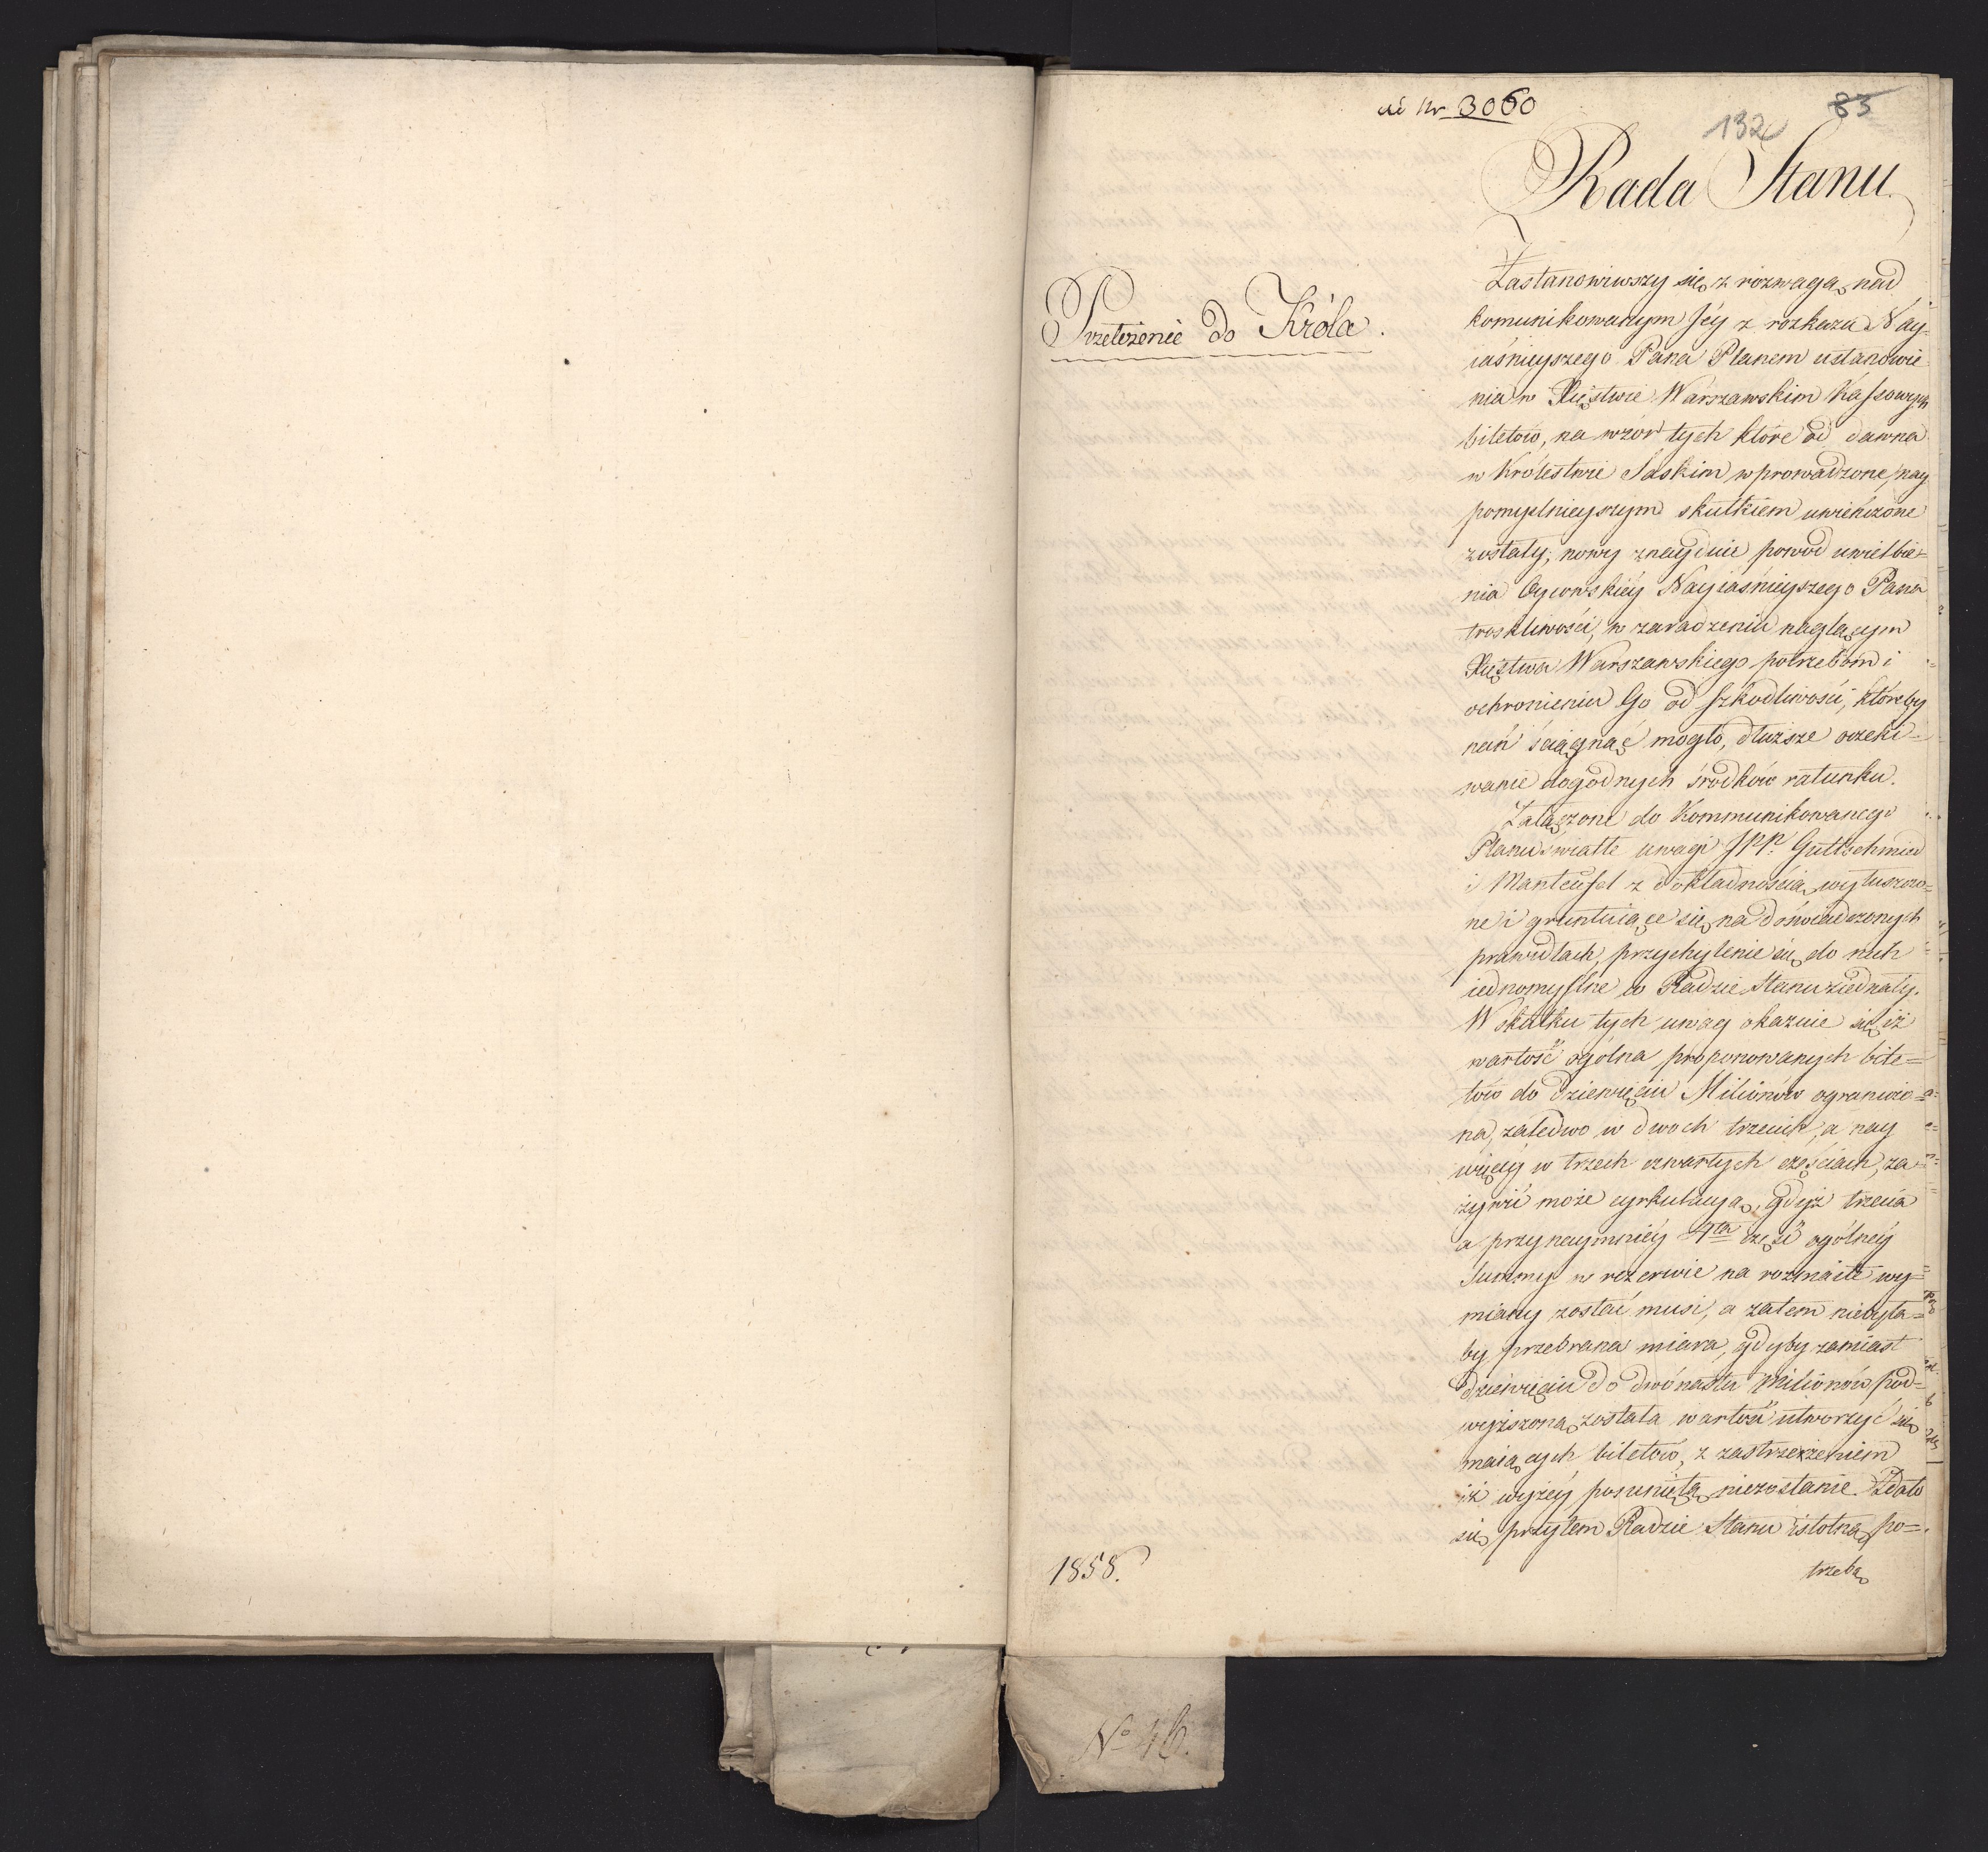 ad Nr 3060
83
132
Rada Stanu
Przełożenie do Króla.
Zastanowiwszy się z rozwagą nad
komunikowanym Jey z rozkazu Nay-
iaśnieyszego Pana Planem ustanowie
nia w Xięstwie Warszawskim Kassowych
biletów, na wzór tych które od dawna
w Królestwie Saskim wprowadzone, nay
pomyślnieyszym skutkiem uwieńczone
zostały; nowy znayduie powód uwielbie-
nia Oycowskiéy Nayiaśnieyszego Pana
troskliwości, w zaradzeniu naglącym
Xięstwa Warszawskiego potrzebom i
ochronieniu Go od szkodliwości, któreby
nań ściągnąć mogło, dłuższe oczeki-
wanie dogodnych środków ratunku.
Załączone do Kommunikowanego
Planu światłe uwagi JPP. Guttschmied
i Manteufel z dokładnością wyłuszczo=
ne i gruntuiące się na doświadczonych
prawidłach, przychylenie się do nich
iednomyślne w Radzie Stanu ziednały.
W skutku tych uwag okazuie się iż
wartość ogólna proponowanych bile=
tów do dziewięciu Milionów ograniczo=
na, zaledwo w dwoch trzecich, a nay
więcéy w trzech czwartych częściach, za=
żywić może cyrkulacyą, gdyż trzecia
a przynaymniéy 4ta część ogólnéy
Summy w rezerwie na rozmaite wy=
miany zostać musi, a zatem niebyła=
by przebrana miara, gdyby zamiast
dziewięciu do dwónastu Milionów pod=
wyższoną została wartość utworzyć się
maiących biletów, z zastrzeżeniem
iż wyżéy posuniętą niezostanie. Zdało
się przytem Radzie Stanu istotną po=
trzebą
1858.
No 46.